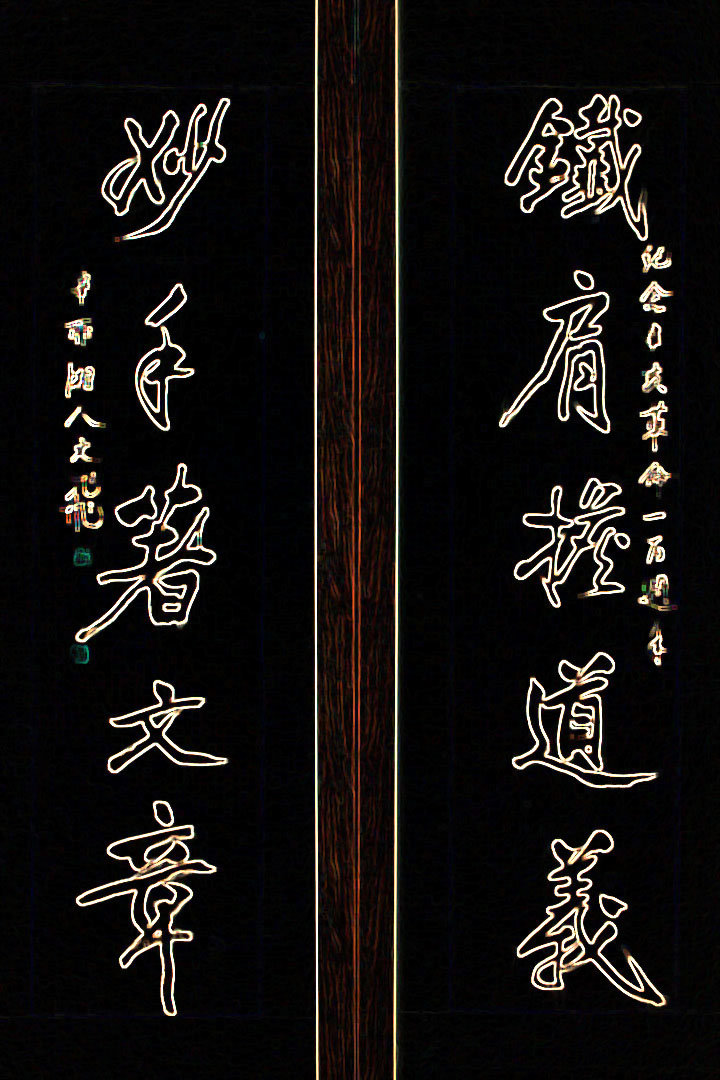 鐵肩擔道義
紀念辛亥革命一百週年
妙手著文章
人文龍